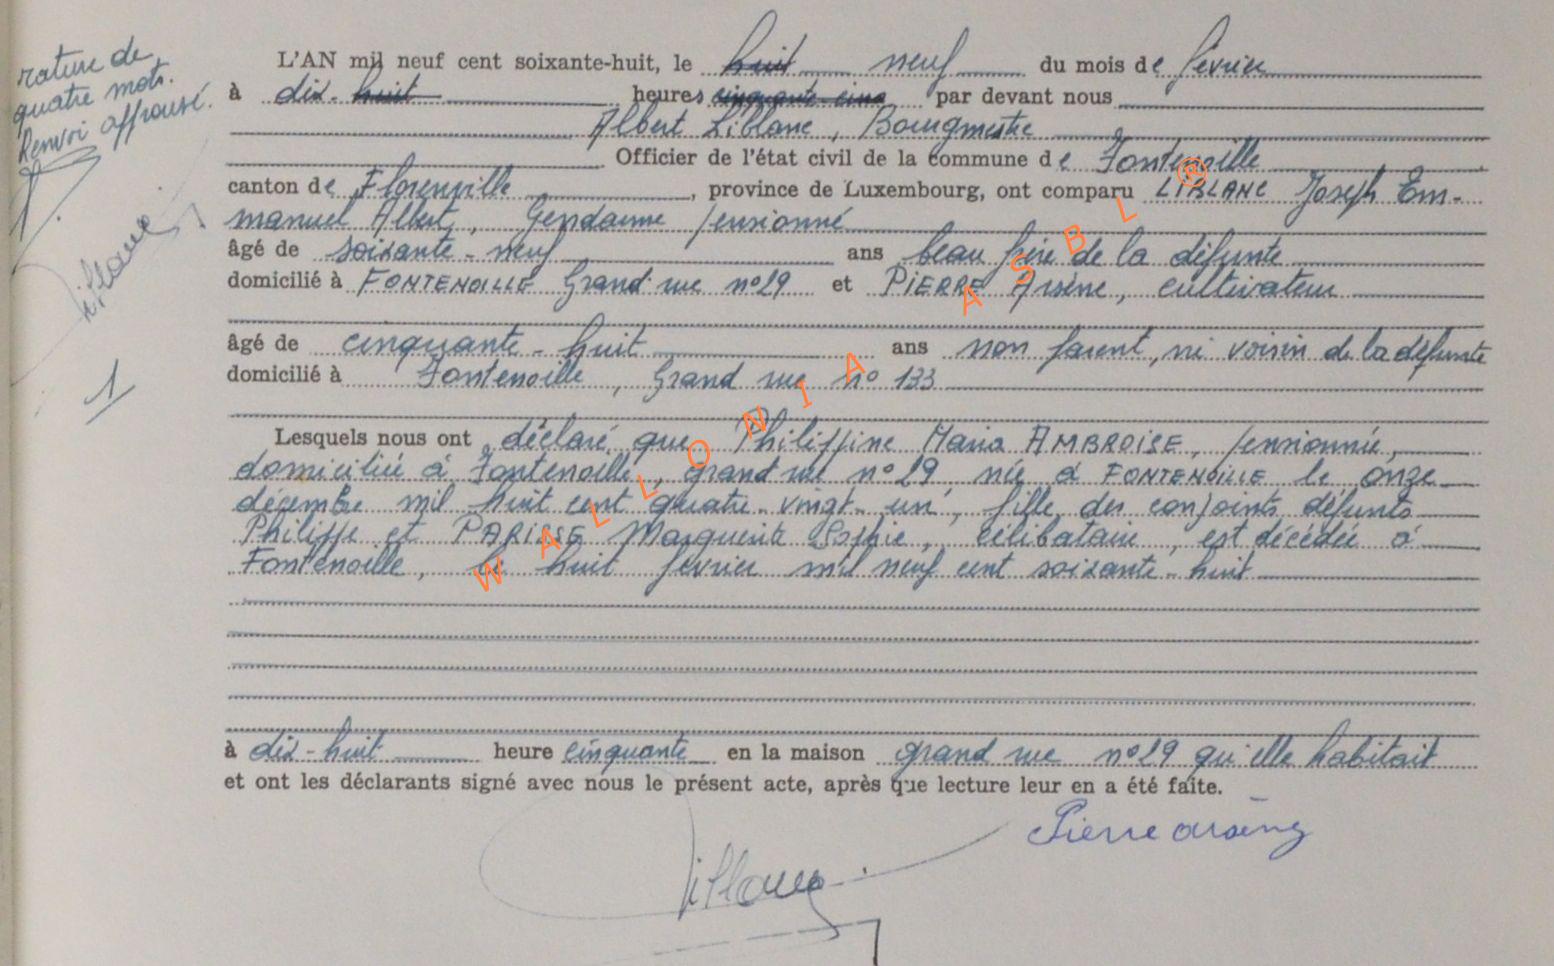 rature de
quatre mots.
Renvoi approuvé.
L'AN mil neuf cent soixante-huit, le huit neuf du mois de février
à dix-huit heures cinquante cinq par devant nous
Albert Liblanc, Bourgmestre
Officier de l'état civil de la commune de Fontenoille
canton de Florenville, province de Luxembourg, ont comparu LIBLANC Joseph Em-
manuel Albert, Gendarme pensionné
âgé de soixante-neuf ans beau frère de la défunte
domicilié à FONTENOILLE Grand'rue n°29 et PIERRE Arsène, cultivateur
âgé de cinquante-huit ans non parent, ni voisin de la défunte
domicilié à Fontenoille, Grand rue n° 133
Lesquels nous ont déclaré que Philippine Maria AMBROISE, pensionnée,
domiciliée à Fontenoille, grand rue n°29 née à FONTENOILLE le onze
décembre mil huit cent quatre-vingt-un, fille des conjoints défunts
Philippe et PARISSE Marguerite Sophie, célibataire, est décédée à
Fontenoille, le huit février mil neuf cent soixante-huit
à dix-huit heure cinquante en la maison grand rue n°29 qu'elle habitait
et ont les déclarants signé avec nous le présent acte, après que lecture leur en a été faite.
Pierre Arsène
Liblanc
Liblanc
1
WALLONIA ASBL ®